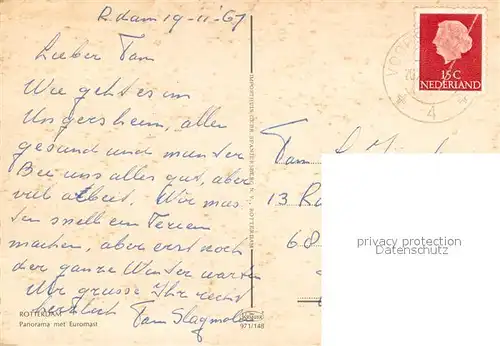 R.dam 19-11-'67
Lieber Fam
Wie geht es im
Ungersheim, allen
gesund und munter
Bei uns alles gut, aber
viel arbeit. Wir
ten snell ein Ferien
machen, aber erst noch
der ganze Winter warten
Wir grusse Ihr recht
herzlich Fam Slagmolen
ROTTERDAM
Panorama met Euromast
971/148
Fam
13
68
15C
NEDERLAND
4
privacy protection
Datenschutz